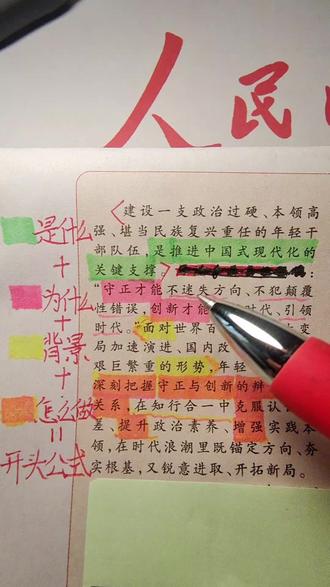 人民
建设一支政治过硬、本领高
强、堪当民族复兴重任的年轻干
部队伍,是推进中国式现代化的
关键支撑
:
“守正才能不迷失方向、不犯颠覆
性错误,创新才能 时代、引领
时代。”面对世界百 大变
局加速演进、国内改
艰巨繁重的形势,年轻
深刻把握守正与创新的辩
关系,在知行合一中克服认
差、提升政治素养、增强实践本
领,在时代浪潮里既锚定方向、夯
实根基,又锐意进取、开拓新局。
是什么
+
为什么
+
背景
+
怎么做
=
开头公式